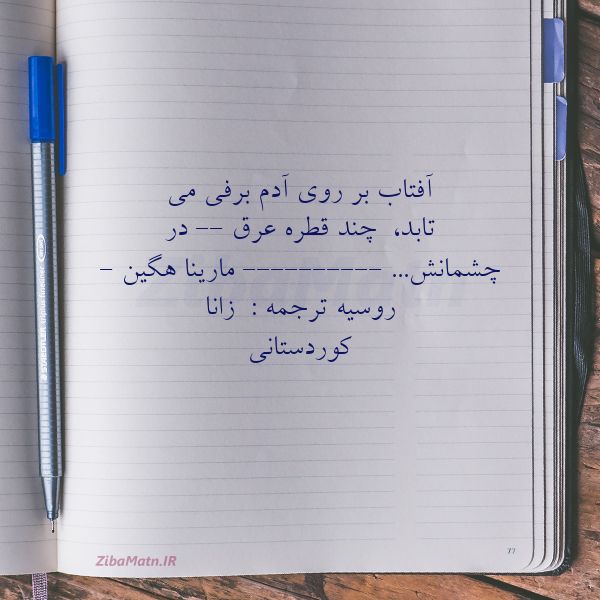 آفتاب بر روی آدم برفی می
تابد، چند قطره عرق -- در
چشمانش... ---------- مارینا هگین -
روسیه ترجمه : زانا
کوردستانی
ZibaMatn.IR
77